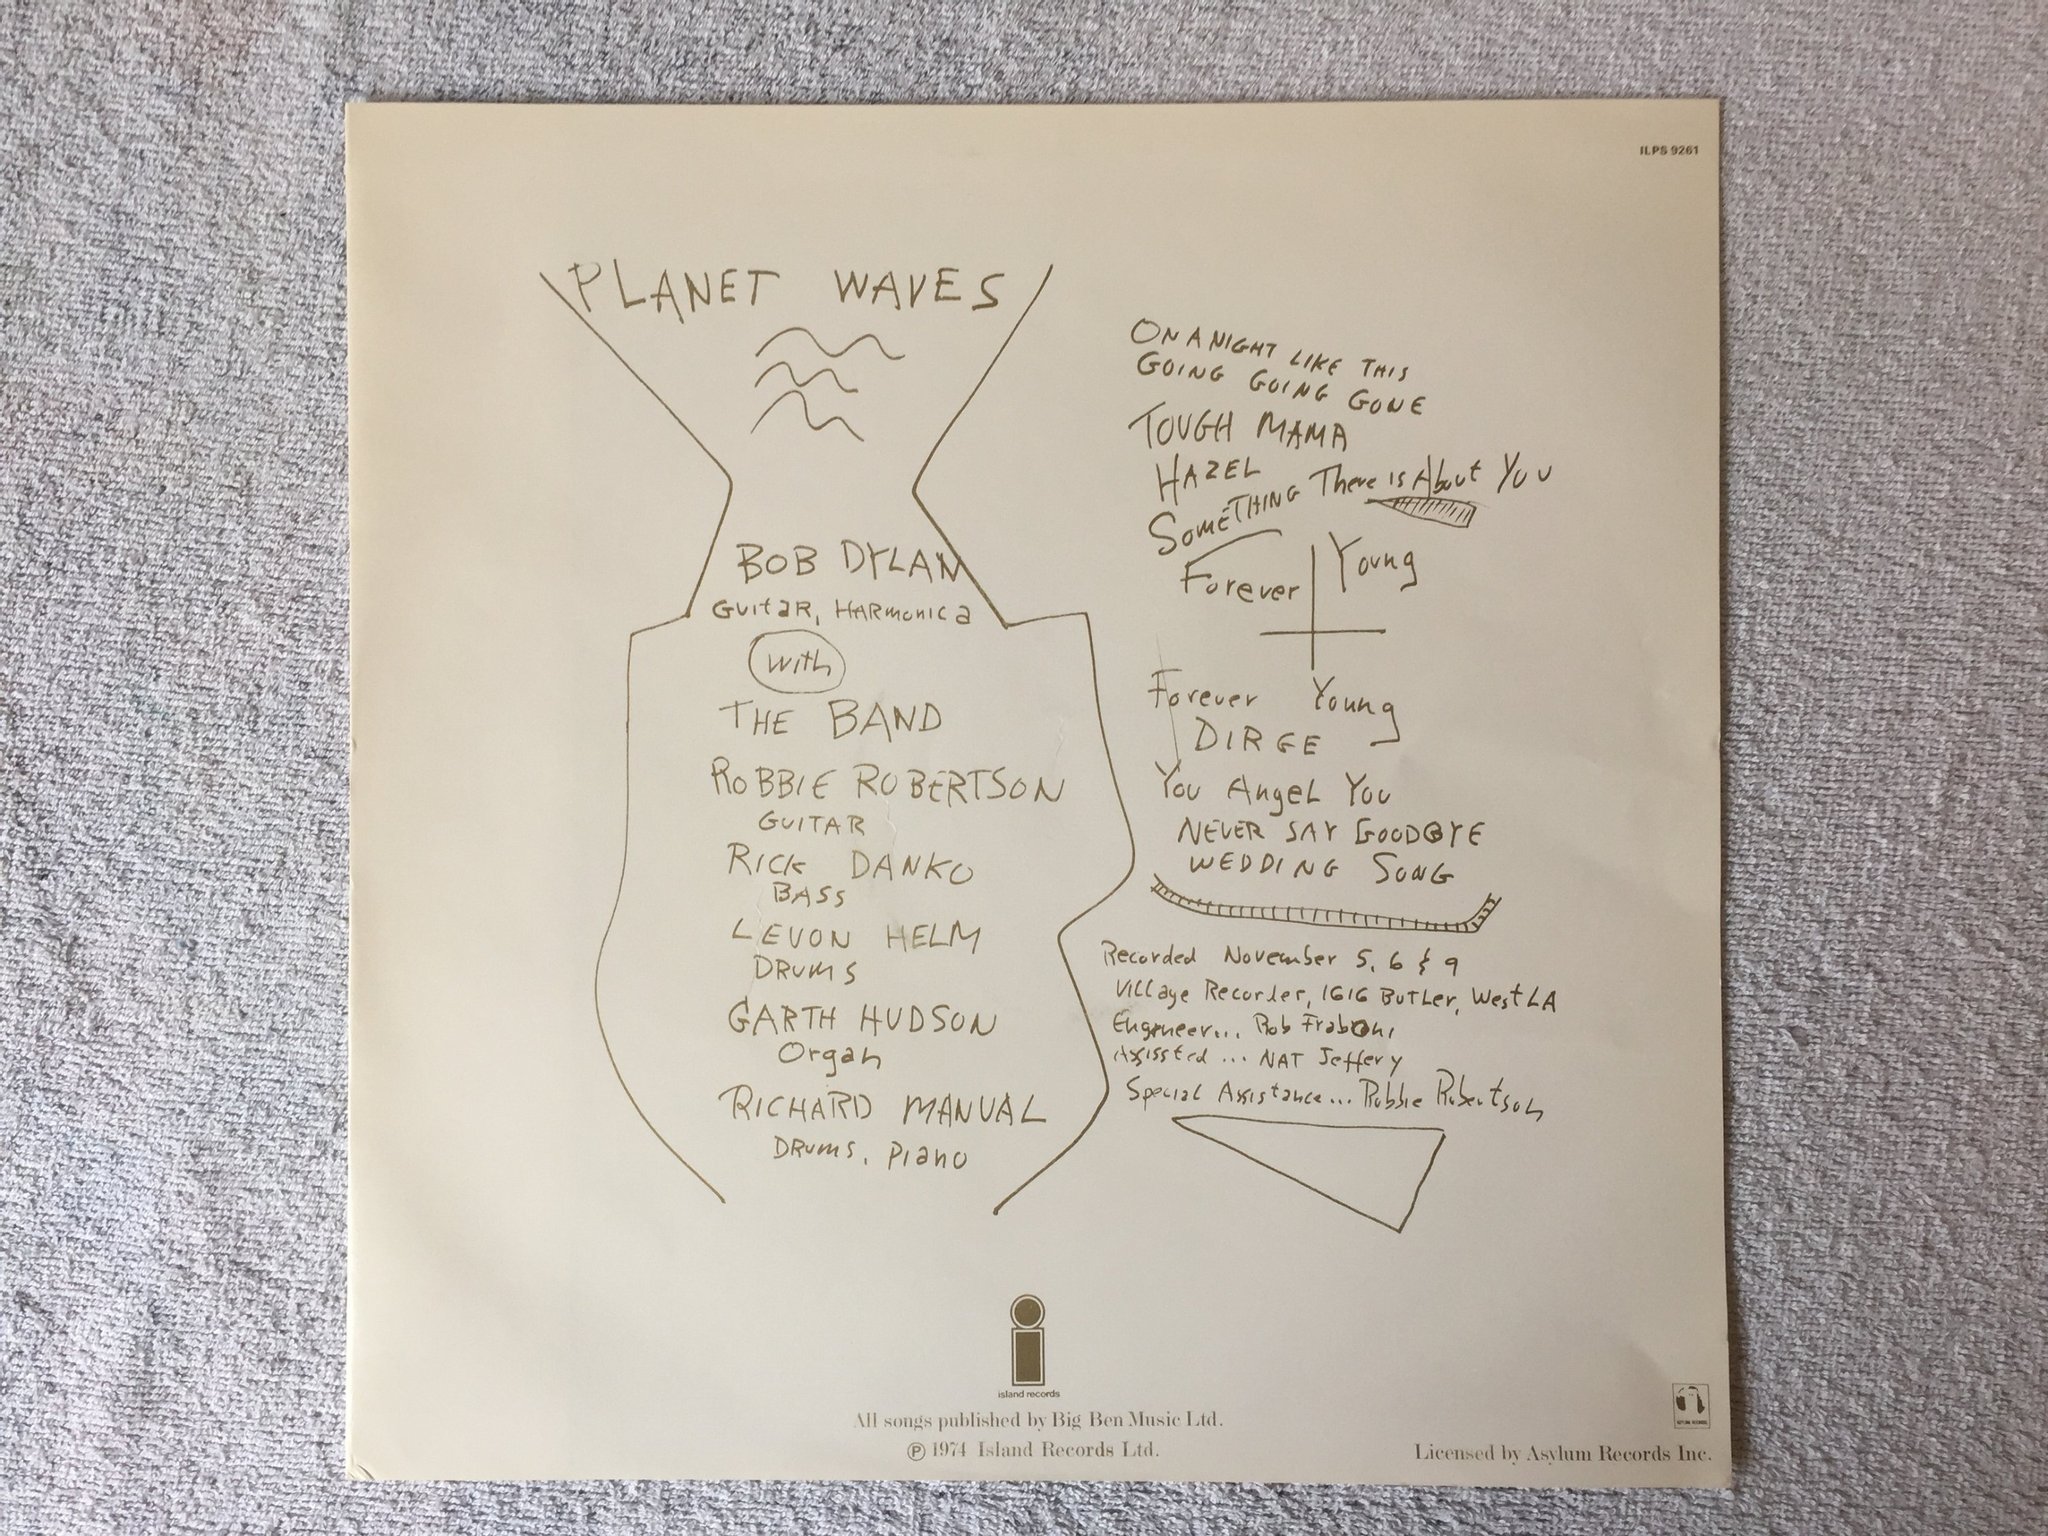 ILPS 9261
PLANET WAVES
BOB DYLAN
GUitaR, HARmonica
with
THE BAND
ROBBIE ROBERTSON
GUITAR
RICK DANKO
BASS
LEVON HELM
DRUMS
GARTH HUDSON
Organ
RICHARD MANUAL
DRUMS, PIANO
ON A NIGHT LIKE THIS
GOING GOING GONE
TOUGH MAMA
HAZEL
SOMETHING There is About You
Forever Young
Forever Young
DIRGE
You AngeL You
NEVER SAY GOODBYE
WEDDING SONG
Recorded November 5, 6 & 9
Village Recorder, 1616 BUTLer, West LA
Engineer... Rob Fraboni
Assissted ... NAT Jeffery
Special Assistance... Robbie Robertson
island records
All songs published by Big Ben Music Ltd.
℗ 1974 Island Records Ltd.
ASYLUM RECORDS
Licensed by Asylum Records Inc.